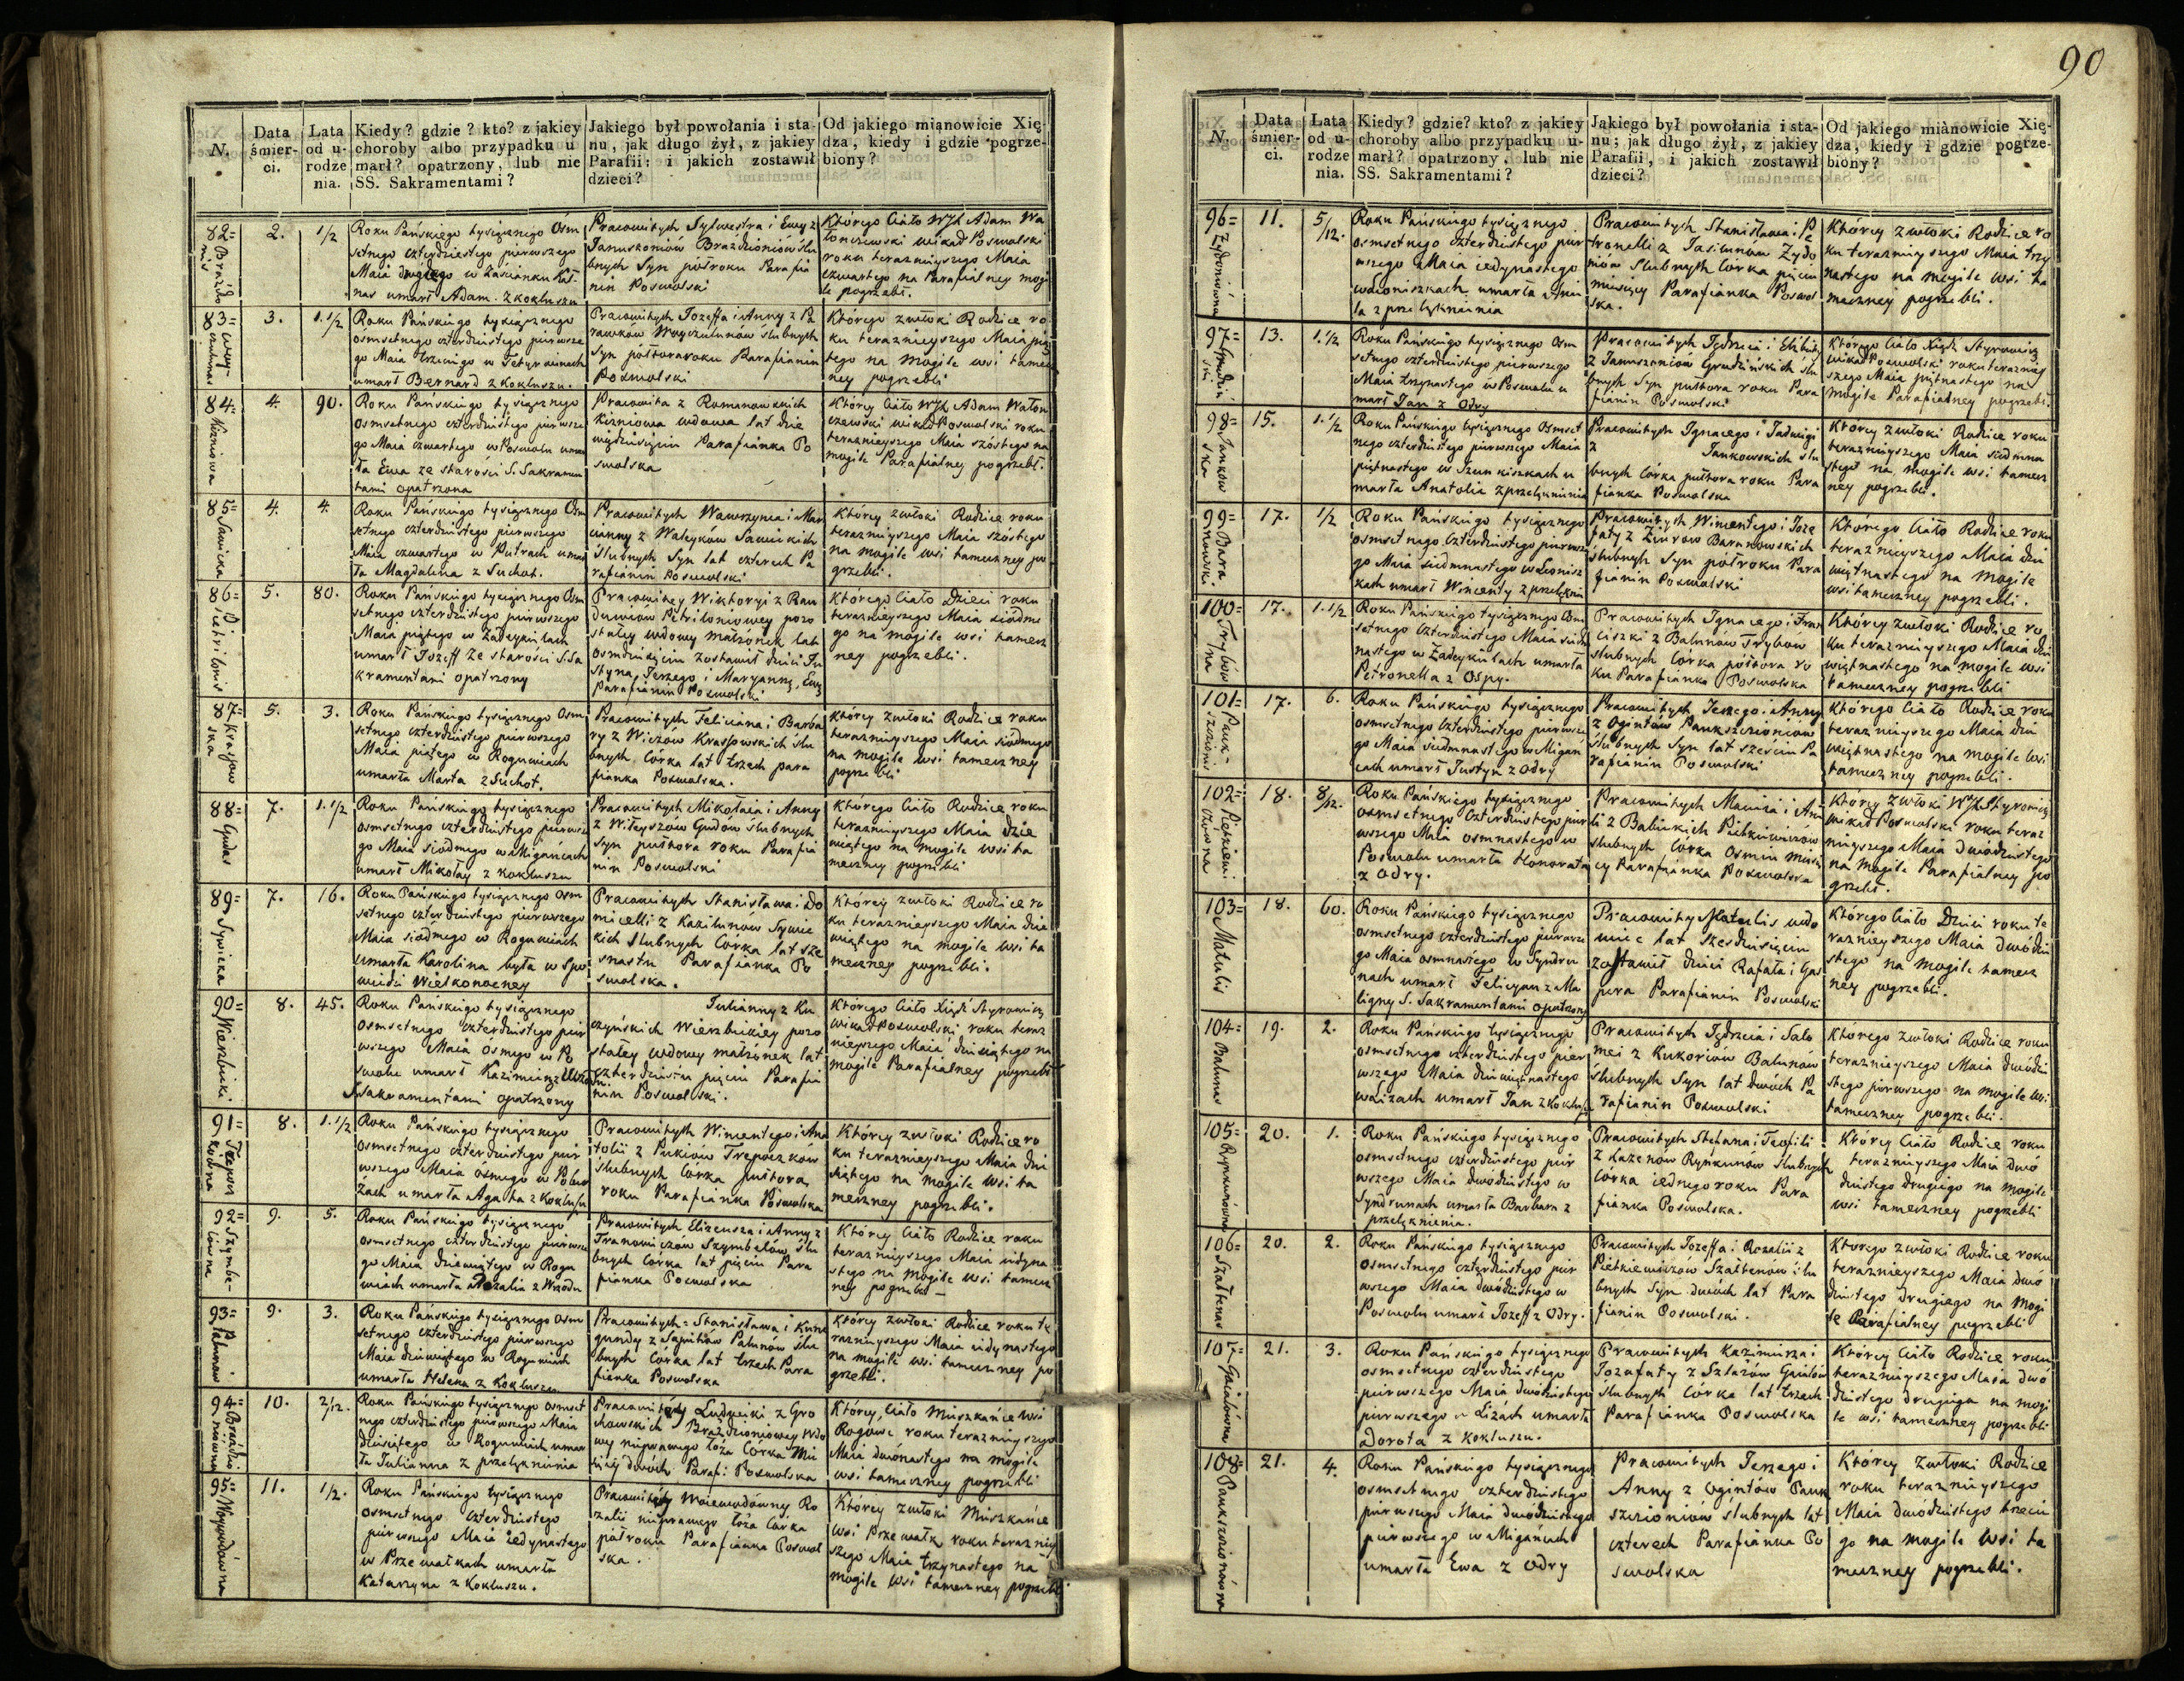 90
N.
Data śmierci.
Lata od urodzenia.
Kiedy? gdzie? kto? z jakiey
choroby albo przypadku u-
marł? opatrzony, lub nie
SS. Sakramentami?
Jakiego był powołania i sta-
nu, jak długo żył, z jakiey
Parafii: i jakich zostawił
dzieci?
Od jakiego mianowicie Xię-
dza, kiedy i gdzie pogrze-
biony?
82=
2.
1/2
Roku Pańskiego tysiącznego Osm
setnego czterdziestego pierwszego
Maia drugiego w Zaścianku
umarł Adam z Kokluszu
Pracowitych Sylwestra i Ewy z
Januszoniow Braździoniów ślu
bnych Syn półroku Parafia
nin Poswolski
Którego Ciało WJX Adam Wa
łonczewski wikar. Poswolski
roku teraznieyszego Maia
czwartego na Parafialney mogi
le pogrzebł.
83=
3.
1.1/2
Roku Pańskiego tysiącznego
osmsetnego czterdziestego pierwsze
go Maia trzeciego w
umarł Bernard z Kokluszu.
Pracowitych Jozeffa i Anny z
ślubnych
Syn półtoraroku Parafianin
Poswolski
Którego zwłoki Rodzice ro
ku teraznieyszego Maia pią
tego na mogile wsi tamecz
ney pogrzebli
84=
4.
90.
Roku Pańskiego tysiącznego
osmsetnego czterdziestego pierwsze
go Maia czwartego w Poswolu umar
ła Ewa ze starości S. Sakramen
tami opatrzona
Pracowita z Romanowskich
Kizniowa wdowa lat dzie
więdziesięciu Parafianka Po
swolska
Którey Ciało WJX Adam Wałon
czewski wikar. Poswolski roku
teraznieyszego Maia szóstego na
mogile Parafialney pogrzebł.
85=
Sawicka
4.
4.
Roku Pańskiego tysiącznego Osm
setnego czterdziestego pierwszego
Maia czwartego w Putrach umar
ła Magdalena z Suchot.
Pracowitych Wawrzynca i Mar
cianny z Waleykow Sawickich
ślubnych Syn lat czterech Pa
rafianin Poswolski
Którey zwłoki Rodzice roku
teraznieyszego Maia szóstego
na mogile wsi tameczney po
grzebli.
86=
5.
80.
Roku Pańskiego tysiącznego Osm
setnego czterdziestego pierwszego
Maia piątego w Zadeykiach
umarł Jozeff ze starości S. Sa
kramentami opatrzony
Pracowitey Wiktoryi z
pozo
stałey wdowy małżonek lat
osmdziesięciu zostawił dzieci Ju
styna, Jerzego i Maryannę, Ewę
Parafianin Poswolski
Którego Ciało Dzieci roku
teraznieyszego Maia siódme
go na mogile wsi tamecz
ney pogrzebli.
87=
5.
3.
Roku Pańskiego tysiącznego Osm
setnego czterdziestego pierwszego
Maia piątego w Roguwiach
umarła Marta z Suchot.
Pracowitych Feliciana i Barba
ry z Wiczów Krassowskich ślu
bnych Córka lat trzech para
fianka Poswolska.
Którey zwłoki Rodzice roku
teraznieyszego Maia siódmego
na mogile wsi tameczney
pogrzebli
88=
Gudas
7.
1.1/2
Roku Pańskiego tysiącznego
osmsetnego czterdziestego pierwsze
go Maia siódmego w Migańcach
umarł Mikołay z Kokluszu
Pracowitych Mikołaia i Anny
z Witeyszów Gudów ślubnych
Syn pułtora roku Parafia
nin Poswolski
Którego Ciało Rodzice roku
teraznieyszego Maia dzie
wiątego na mogile wsi ta
meczney pogrzebli
89=
Sywicka
7.
16.
Roku Pańskiego tysiącznego osm
setnego czterdziestego pierwszego
Maia siódmego w Roguwiach
umarła Karolina była w Spo
wiedzi Wielkonocney
Pracowitych Stanisława i Do
micelli z Kazilunów Sywic
kich ślubnych Córka lat sze
snastu Parafianka Po
swolska.
Którey zwłoki Rodzice ro
ku teraznieyszego Maia dzie
wiątego na mogile wsi ta
meczney pogrzebli.
90=
Wierzbicki
8.
45.
Roku Pańskiego tysiącznego
osmsetnego czterdziestego pier
wszego Maia ósmego w Po
swolu umarł Kazimierz
S. Sakramentami opatrzony
Julianny z Ku
czyńskich Wierzbickiey pozo
stałey wdowy małżonek lat
czterdziestu pięciu Parafia
nin Poswolski.
Którego Ciało Xiądz Styrowicz
wikar. Poswolski roku teraz
nieyszego Maia dziesiątego na
mogile Parafialney pogrzebł
91=
8.
1.1/2
Roku Pańskiego tysiącznego
osmsetnego czterdziestego pier
wszego Maia ósmego w
umarła Agatha z Kokluszu
Pracowitych Wincentego i Ana
tolii z Pukiów Trepoczków
ślubnych Córka pułtora
roku Parafianka Poswolska
Którey zwłoki Rodzice ro
ku teraznieyszego Maia dzie
siątego na mogile wsi ta
meczney pogrzebli.
92=
Szymbe-
lówna
9.
5.
Roku Pańskiego tysiącznego
osmsetnego czterdziestego pierwsze
go Maia dziewiątego w Rogu
wiach umarła Rozalia z Wrzodu
Pracowitych Elizeusza i Anny z
Tranowiczów Szymbelów ślu
bnych Córka lat pięciu Para
fianka Poswolska
Którey Ciało Rodzice roku
teraznieyszego Maia iedyna
stego na mogile wsi tamecz
ney pogrzebli
93=
9.
3.
Roku Pańskiego tysiącznego osm
setnego czterdziestego pierwszego
Maia dziewiątego w Roguwiach
umarła Helena z Kokluszu
Pracowitych Stanisława i Kune
gundy z Saputów Palunów ślu
bnych Córka lat trzech Para
fianka Poswolska
Którey zwłoki Rodzice roku te
raznieyszego Maia iedynastego
na mogile wsi tameczney po
grzebli.
94=
10.
2/12.
Roku Pańskiego tysiącznego osmset
nego czterdziestego pierwszego Maia
dziesiątego w Roguwiach umar
ła Julianna z przelęknienia
Pracowitey Ludwiki z Gro
chowskich Braździoniowey wdo
wy nieprawego łoża Córka Mie
sięcy dwóch Parafi: Poswolska
Którey Ciało Mieszkańce wsi
Roguwi roku teraznieyszego
Maia dwónastego na mogile
wsi tameczney pogrzebli
95=
11.
1/2.
Roku Pańskiego tysiącznego
osmsetnego czterdziestego
pierwszego Maia iedynastego
w Przewałkach umarła
Katarzyna z Kokluszu.
Pracowitey Woiewodówny Ro
zalii nieprawego łoża Córka
półroku Parafianka Poswol
ska.
Którey zwłoki Mieszkańce
wsi Przewałk roku terazniey
szego Maia trzynastego na
mogile wsi tameczney pogrzebli
N.
Data śmierci.
Lata od urodzenia.
Kiedy? gdzie? kto? z jakiey
choroby albo przypadku u-
marł? opatrzony, lub nie
SS. Sakramentami?
Jakiego był powołania i sta-
nu; jak długo żył, z jakiey
Parafii, i jakich zostawił
dzieci?
Od jakiego miànowicie Xię-
dza, kiedy i gdzie pogrze-
biony?
96=
11.
5/12.
Roku Pańskiego tysiącznego
osmsetnego czterdziestego pier
wszego Maia iedynastego
umarła
z przelęknienia
Pracowitych Stanisława i Pe
tronelli z Jasiunów Żydo
niów ślubnych Córka pięciu
miesięcy Parafianka Poswol
ska.
Którey zwłoki Rodzice ro
ku teraznieyszego Maia trzy
nastego na mogile wsi ta
meczney pogrzebli.
97=
13.
1.1/2
Roku Pańskiego tysiącznego Osm
setnego czterdziestego pierwszego
Maia trzynastego w Poswolu u
marł Jan z Odry
Pracowitych Jędrzeia i Elżbiety
z Januszoniów Grudzińskich ślu
bnych Syn pułtora roku Para
fianin Poswolski
Którego Ciało Xiądz Styrowicz
wikar. Poswolski roku terazniey
szego Maia piętnastego na
mogile Parafialney pogrzebł.
98=
Jankow
ska
15.
1.1/2
Roku Pańskiego tysiącznego Osmset
nego czterdziestego pierwszego Maia
piętnastego w Szunkiszkach u
marła Anatolia z przelęknienia
Pracowitych Ignacego i Jadwigi
z Jankowskich ślu
bnych Córka pułtora roku Para
fianka Poswolska
Którey zwłoki Rodzice roku
teraznieyszego Maia siedmna
stego na mogile wsi tamecz
ney pogrzebli.
99=
Bara
nowski
17.
1/2
Roku Pańskiego tysiącznego
osmsetnego czterdziestego pierwsze
go Maia siedmnastego w
kach umarł Wincenty z przelęknie
Pracowitych Wincentego i Joze
faty z Ziurow Baranowskich
ślubnych Syn półroku Para
fianin Poswolski
Którego Ciało Rodzice roku
teraznieyszego Maia dzie
więtnastego na mogile
wsi tameczney pogrzebli.
100=
17.
1.1/2
Roku Pańskiego tysiącznego Osm
setnego czterdziestego Maia siedm
nastego w Zadeykiach umarła
Petronella z Ospy.
Pracowitych Ignacego i Fran
ciszki z Balunów Trybów
ślubnych Córka półtora ro
ku Parafianka Poswolska
Którey zwłoki Rodzice ro
ku teraznieyszego Maia dzie
więtnastego na mogile wsi
tameczney pogrzebli
101=
17.
6.
Roku Pańskiego tysiącznego
osmsetnego czterdziestego pierwsze
go Maia siedmnastego w Migań
cach umarł Justyn z Odry
Pracowitych Jerzego i Anny
z Ogintów Paukszcioniów
ślubnych Syn lat sześciu Pa
rafianin Poswolski
Którego Ciało Rodzice roku
teraznieyszego Maia dzie
więtnastego na mogile wsi
tameczney pogrzebli.
102=
18.
8/12.
Roku Pańskiego tysiącznego
osmsetnego czterdziestego pier
wszego Maia osmnastego w
Poswolu umarła Honorata
z Odry.
Pracowitych Macieia i Anie
li z Balickich Pietkiewiczów
ślubnych Córka osmiu miesię
cy Parafianka Poswolska
Którey zwłoki WJX Styrowicz
wikar. Poswolski roku teraz
nieyszego Maia dwódziestego
na mogile Parafialney po
grzebł.
103=
Matulis
18.
60.
Roku Pańskiego tysiącznego
osmsetnego czterdziestego pierwsze
go Maia osmnastego w Syndru
nach umarł Felicyan z Ma
ligny S. Sakramentami opatrzony
Pracowity Matulis wdo
wiec lat sześdziesięciu
zostawił dzieci Rafała i Gas
pra Parafianin Poswolski
Którego Ciało Dzieci roku te
raznieyszego Maia dwódzie
stego na mogile tamecz
ney pogrzebli.
104=
Balunas
19.
2.
Roku Pańskiego tysiącznego
osmsetnego czterdziestego pier
wszego Maia dziewiętnastego
w Liżach umarł Jan z Kokluszu
Pracowitych Jędrzeia i Salo
mei z Kukoriów Balunów
ślubnych Syn lat dwóch Pa
rafianin Poswolski
Którego zwłoki Rodzice roku
teraznieyszego Maia dwódzie
stego pierwszego na mogile wsi
tameczney pogrzebli.
105=
Rynkunówna
20.
1.
Roku Pańskiego tysiącznego
osmsetnego czterdziestego pier
wszego Maia dwódziestego w
Syndrunach umarła Barbara z
przelęknienia.
Pracowitych Stefana i Teofili
z Kazenów Rynkunów ślubnych
Córka iednego roku Para
fianka Poswolska.
Którey Ciało Rodzice roku
teraznieyszego Maia dwó
dziestego drugiego na mogile
wsi tameczney pogrzebli
106=
Szaltenas
20.
2.
Roku Pańskiego tysiącznego
osmsetnego czterdziestego pier
wszego Maia dwódziestego w
Poswolu umarł Jozeff z Odry.
Pracowitych Jozeffa i Rozalii z
Pietkiewiczów Szaltenow ślu
bnych Syn dwóch lat Para
fianin Poswolski.
Którego zwłoki Rodzice roku
teraznieyszego Maia dwó
dziestego drugiego na mogi
le Parafialney pogrzebli
107=
Gaialówna
21.
3.
Roku Pańskiego tysiącznego
osmsetnego czterdziestego
pierwszego Maia dwódziestego
pierwszego w Liżach umarła
Dorota z Kokluszu.
Pracowitych Kazimierza i
Jozafaty z Szlażów Gaialów
ślubnych Córka lat trzech
Parafianka Poswolska
Którey Ciało Rodzice roku
teraznieyszego Maia dwó
dziestego drugiego na mogi
le wsi tameczney pogrzebli
108=
21.
4.
Roku Pańskiego tysiącznego
osmsetnego czterdziestego
pierwszego Maia dwódziestego
pierwszego w Migańcach
umarła Ewa z Odry
Pracowitych Jerzego i
Anny z Ogintów Pauk
szcioniów ślubnych lat
czterech Parafianka Po
swolska
Którey zwłoki Rodzice
roku teraznieyszego
Maia dwódziestego trzecie
go na mogile wsi ta
meczney pogrzebli.